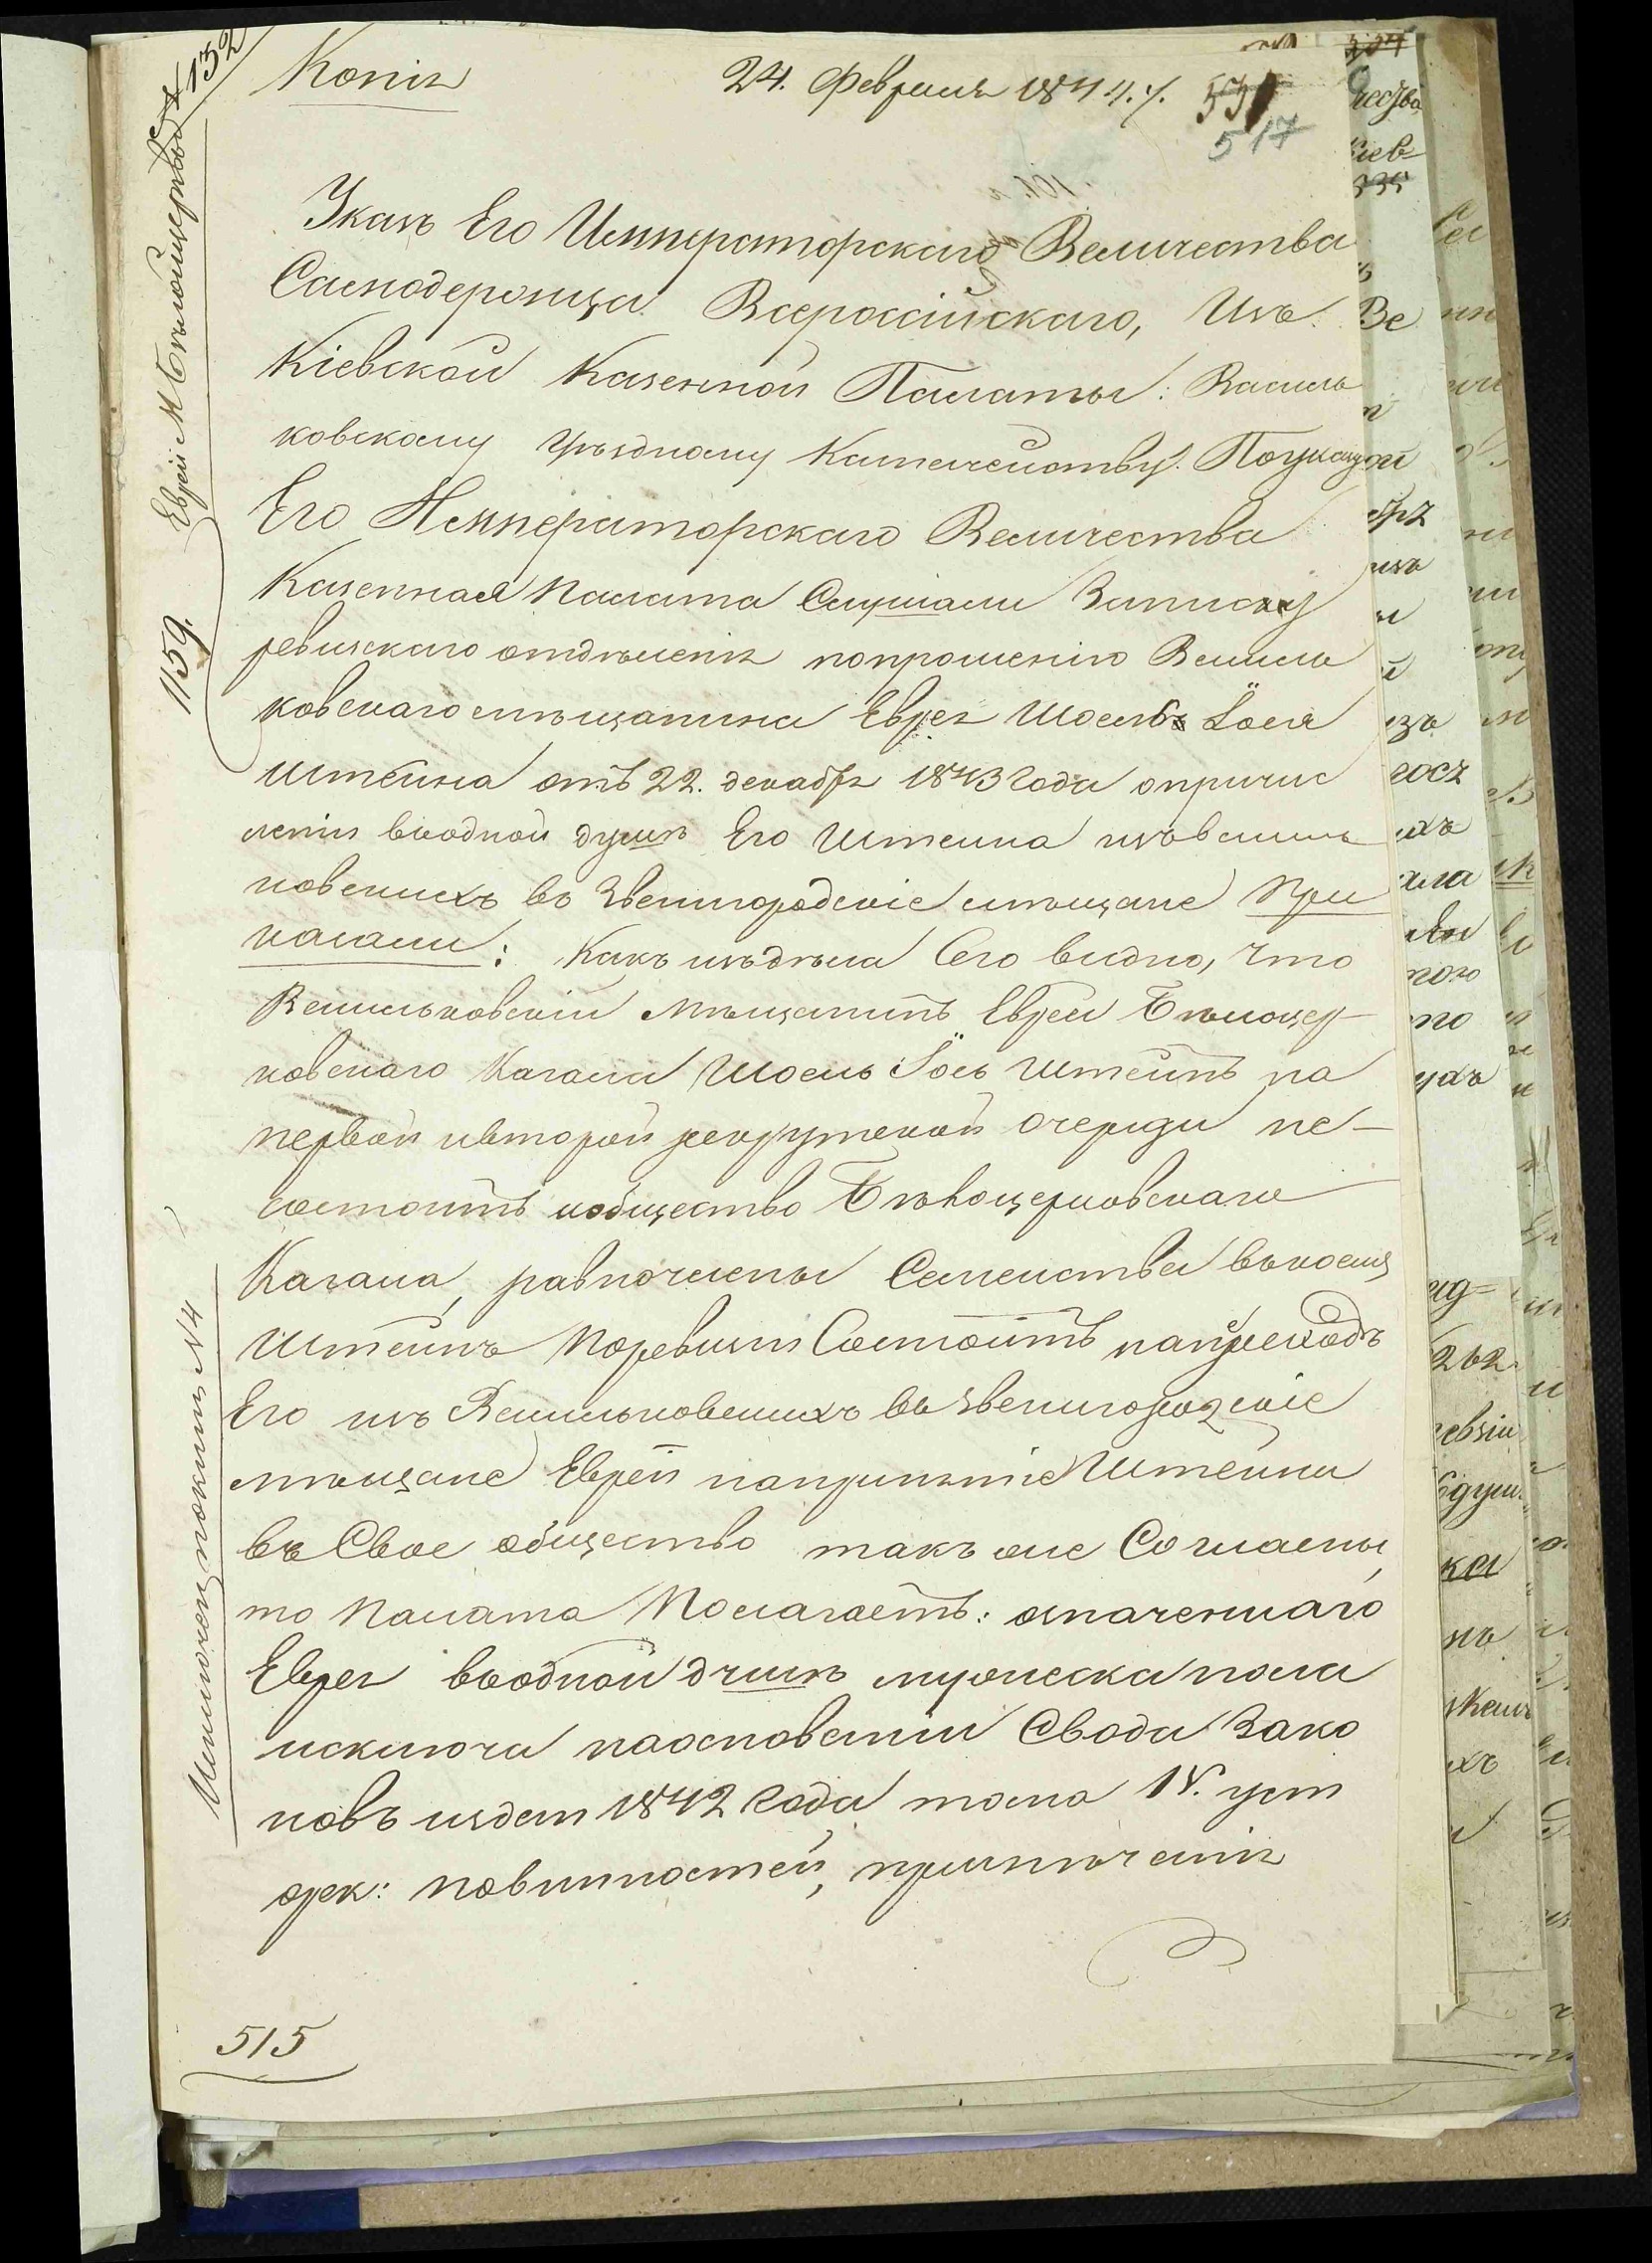 Копія
24. Февраля 1844. г.
531
517
Указъ Его Императорскаго Величества
Самодержца Всероссійскаго, Изъ
Кіевской Казенной Палаты: Василь
ковскому Уѣздному Казначейству. Поуказу
Его Императорскаго Величества
Казенная Палата Слушали Записку
ревизскаго отдѣленія попрошенію Василь
ковскаго мѣщанина Еврея Шоеля Іоеля
Штейна отъ 22. декабря 1843 года опричис
леніи водной душѣ Его Штейна изъвасиль
ковскихъ въ Звенигородскіе мѣщане При
казали: Какъ изъдѣла Сего видно, Что
Васильковскій мѣщанинъ Еврей Бѣлоцер-
ковскаго Кагала Шоель Іоель Штейнъ на
первой ивторой рекрутской очереди не-
состоитъ иобщество Бѣлоцерковскаго
Кагала, равночлены Семейства вкоемъ
Штейнъ поревизіи Состоитъ напереходъ
Его изъ Васильковскихъ въ Звенигородскіе
мѣщане Евреи напринятіе Штейна
въ Свое общество такъ же Согласны,
то палата Полагаетъ: означеннаго
Еврея водной душѣ мужеска пола
исключа наосновании Свода Зако
новъ издан 1842 года тома IV. уст
орек: повинностей, примѣчанія
515
1159. Евреи М Бѣлойцеркви 132
Исключен токмин N 4